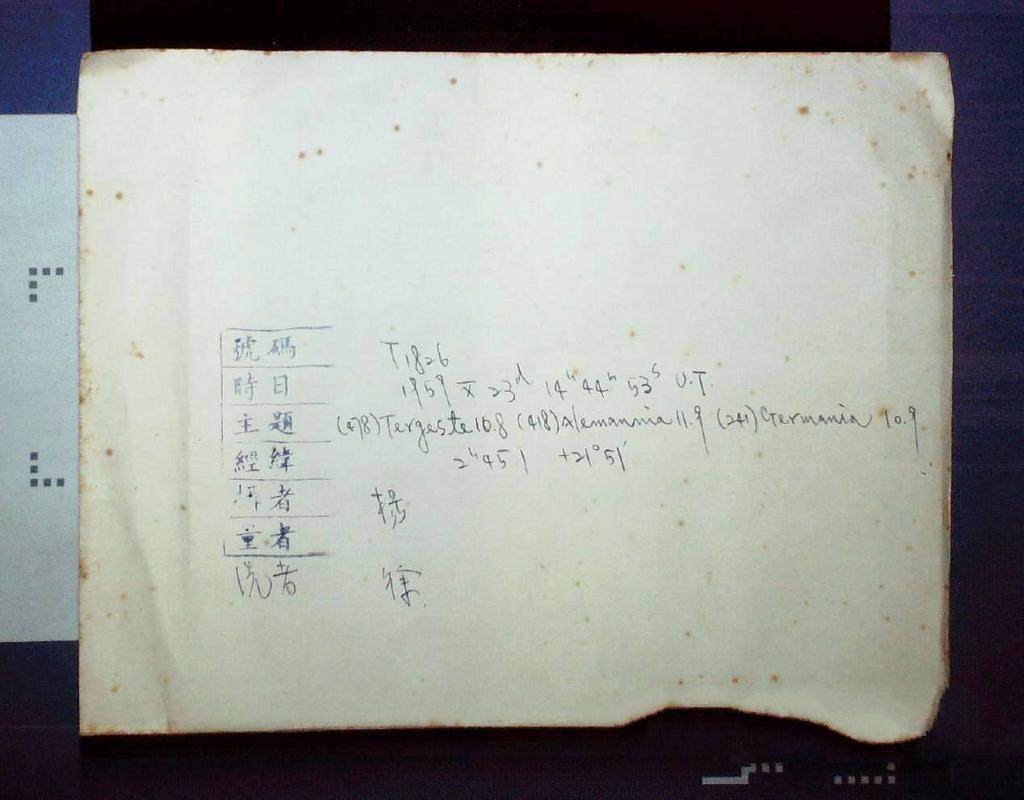 號碼 T1826
時日 1959 X 23d 14h 44m 53s U.T.
主題 (478) Tergeste 10.8 (418) Alemannia 11.9 (241) Germania 10.9
經緯 2h 45 1 +21° 51'
者 楊
量者
洗者 徐